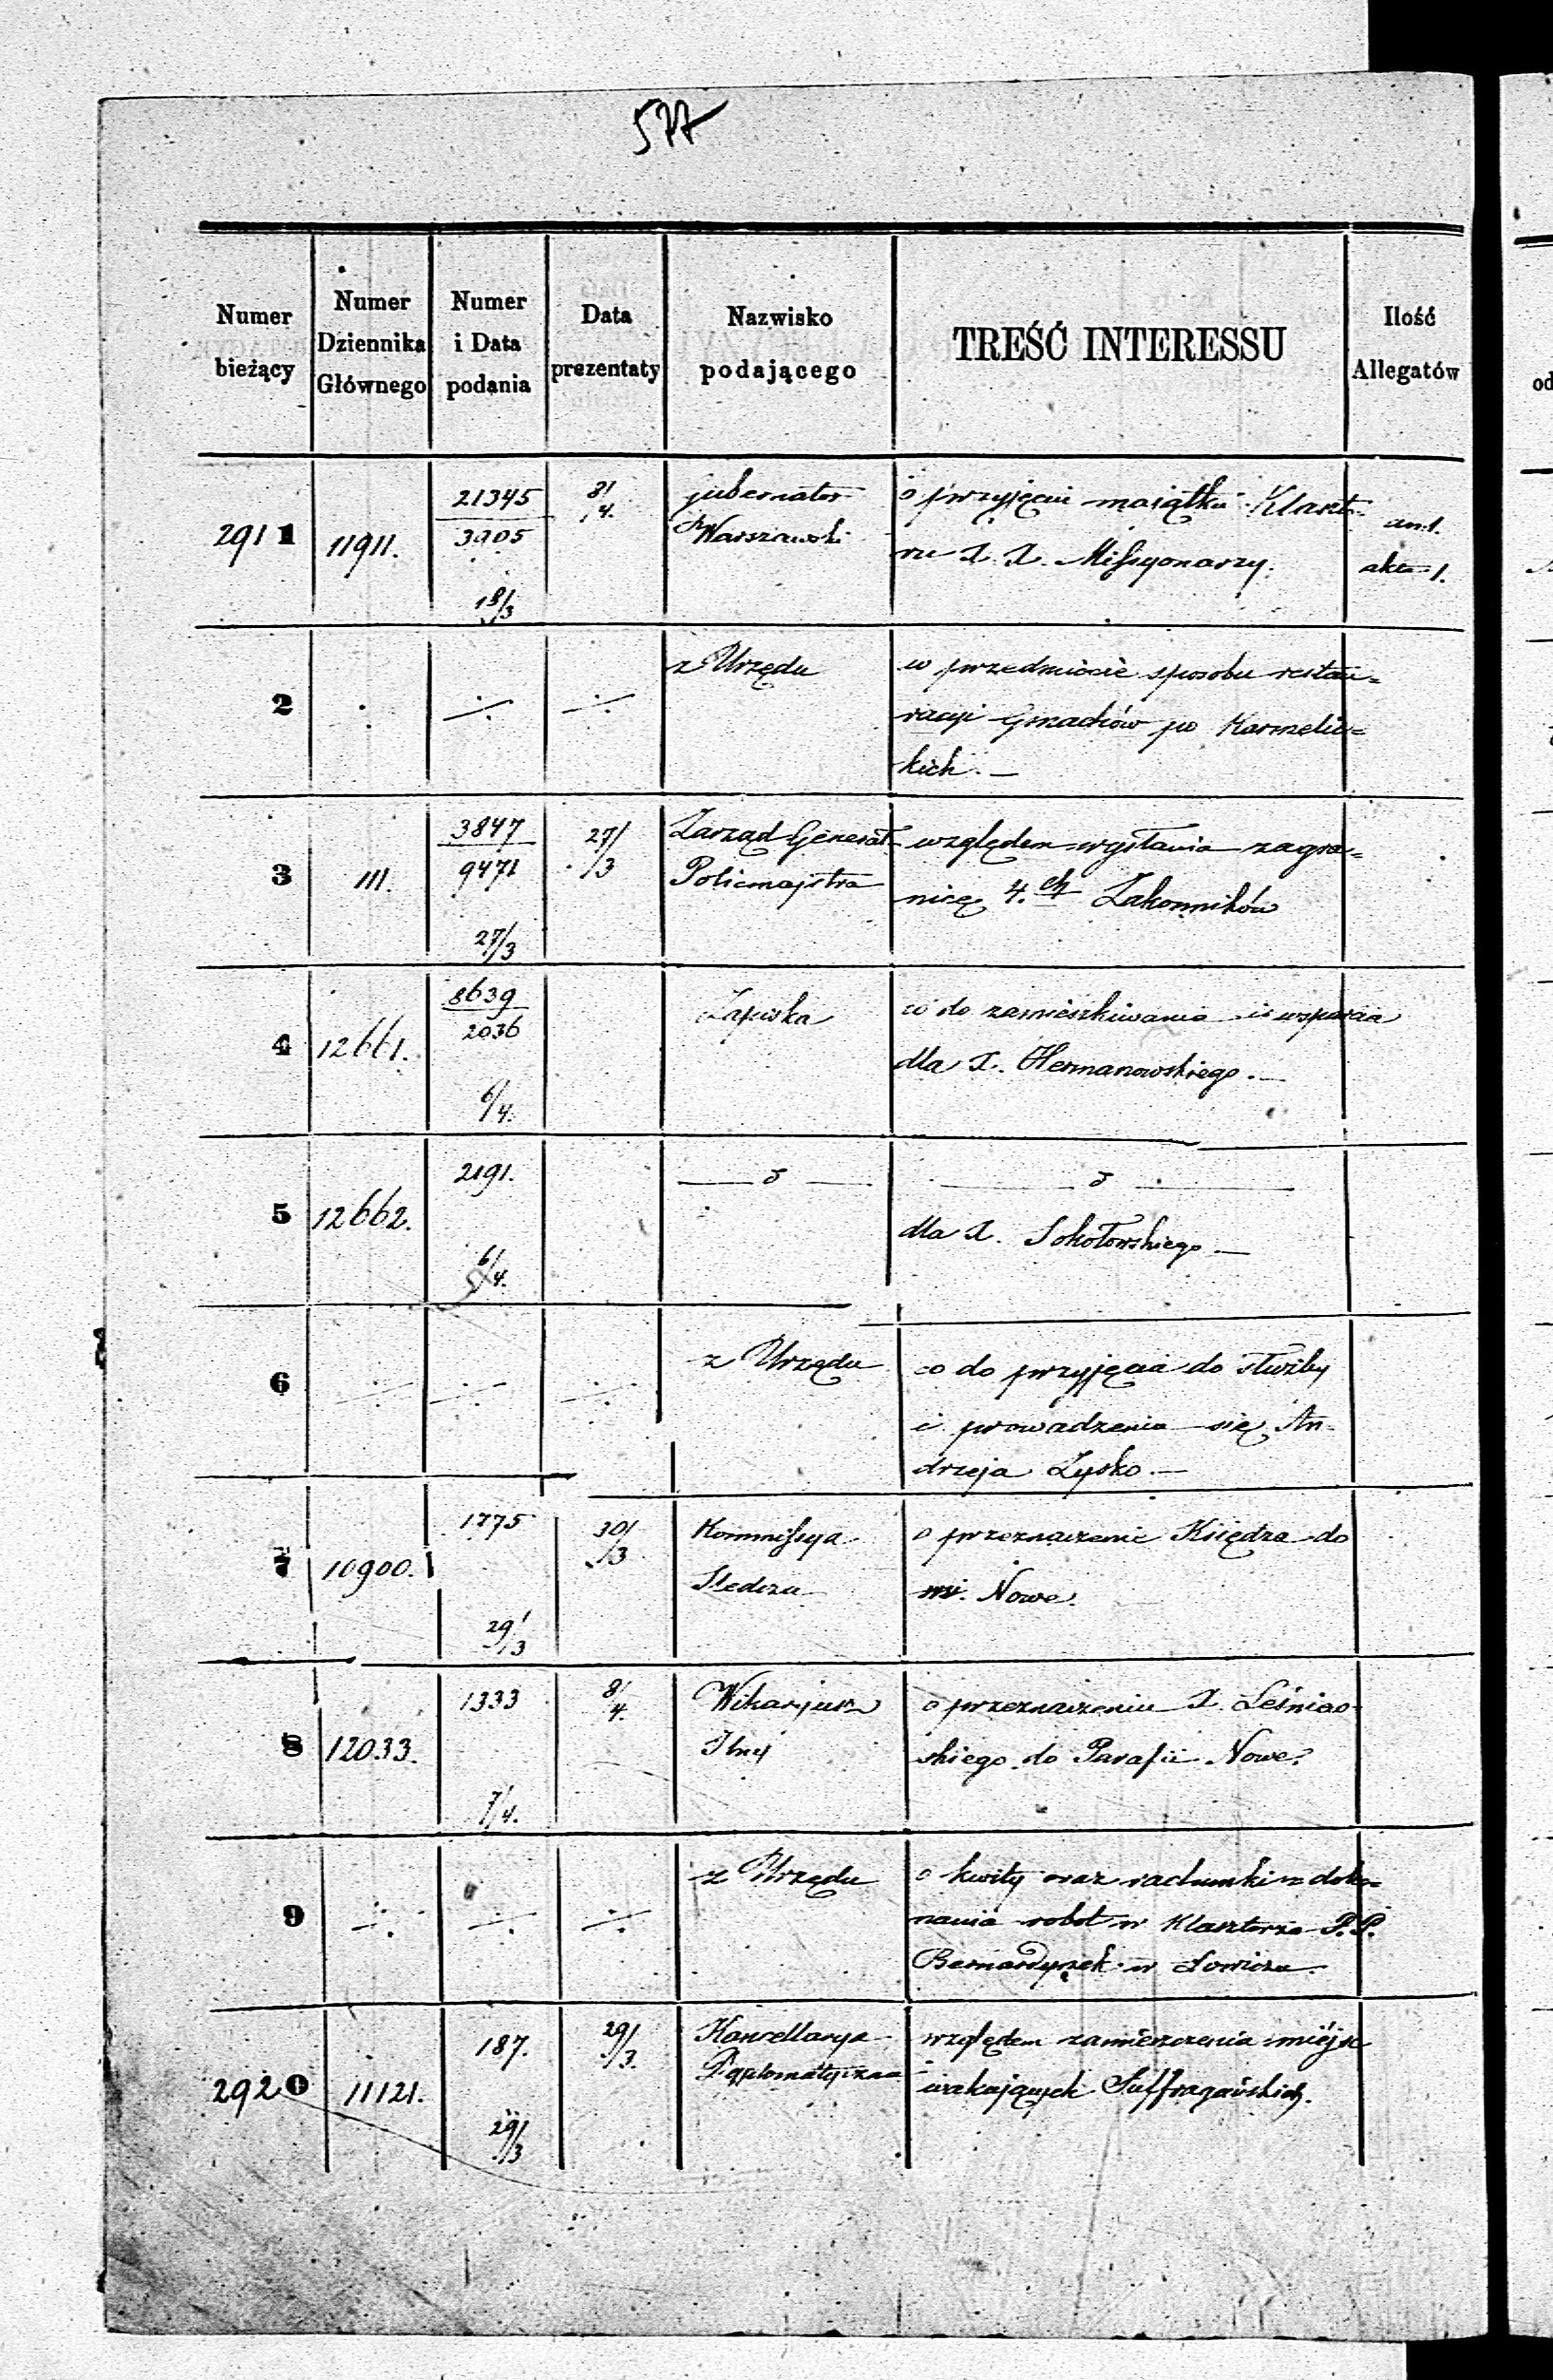 577
Numer bieżący
Numer Dziennika Głównego
Numer i Data podania
Data prezentaty
Nazwisko podającego
TREŚĆ INTERESSU
Ilość Allegatów
2911 11911. 21345 / 3905 18/3 8/4. Gubernator Warszawski
o przyjęcie majątku Klaszto-
ru X. X. Missyonarzy.
an 1.
akta 1.
2 z Urzędu
w przedmiocie sposobu restau=
racyi Gmachów po Karmelic=
kich. —
3 111. 3847 / 9471 27/3 27/3 Zarząd Generał Policmajstra
względem wysłania zagra=
nicę 4.ch Zakonników
4 12661. 8639 / 2036 6/4. Zapiska
co do zamieszkiwania i wsparcia
dla X. Hermanowskiego. —
5 12662. 2191. 6/4.
dla X. Sokołowskiego —
6 z Urzędu
co do przyjęcia do służby
i prowadzenia się An-
drzeja Zysko. —
7 10900. 1775 29/3 30/3 Kommissya Śledcza
o przeznaczenie Księdza do
wsi. Nowe.
8 12033. 1333 7/4. 8/4. Wikaryusz
o przeznaczeniu X. Leśniew-
skiego do Parafii Nowe.
9 z Urzędu
o kwity oraz rachunki z doko-
nania robot w Klasztorze P.P.
Bernardynek w Łowiczu.
2920 11121. 187. 29/3 29/3. Kancellarya Dyplomatyczna
względem zamieszczenia miejsc
wakających Suffragańskich.